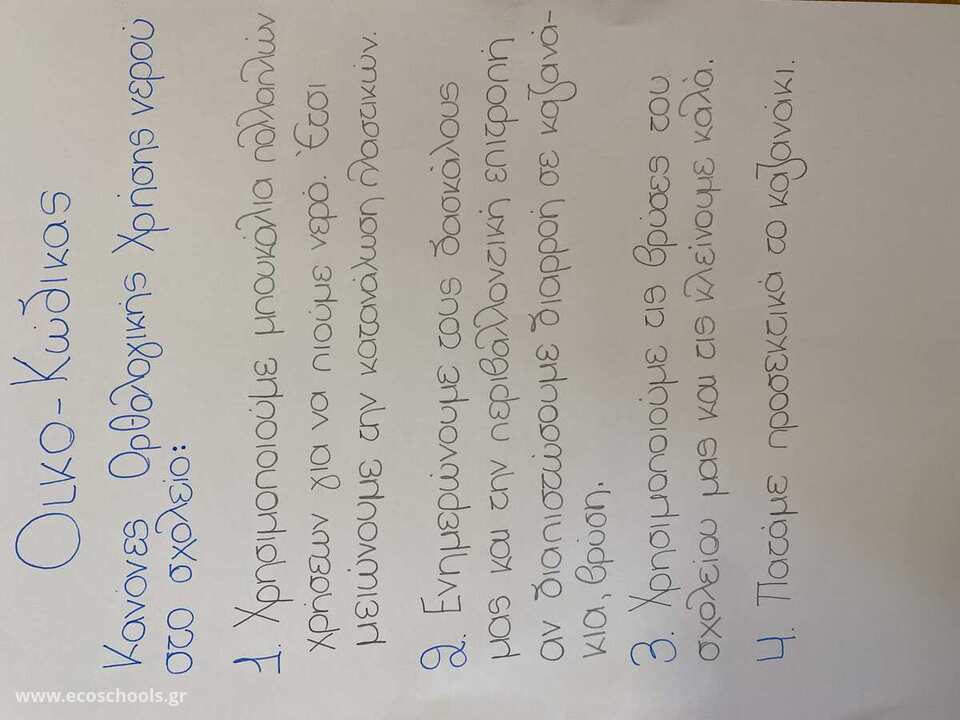 Οικο-Κώδικας
Κανόνες Ορθολογικής Χρήσης νερού
στο σχολείο:
1. Χρησιμοποιούμε μπουκάλια πολλαπλών
χρήσεων για να πιούμε νερό. Έτσι
μειώνουμε την κατανάλωση πλαστικών.
2. Ενημερώνουμε τους δασκάλους
μας και την περιβαλλοντική επιτροπή
αν διαπιστώσουμε διαρροή σε καζανά-
κια, βρύση.
3. Χρησιμοποιούμε τις βρύσες του
σχολείου μας και τις κλείνουμε καλά.
4. Πατάμε προσεκτικά το καζανάκι.
www.ecoschools.gr